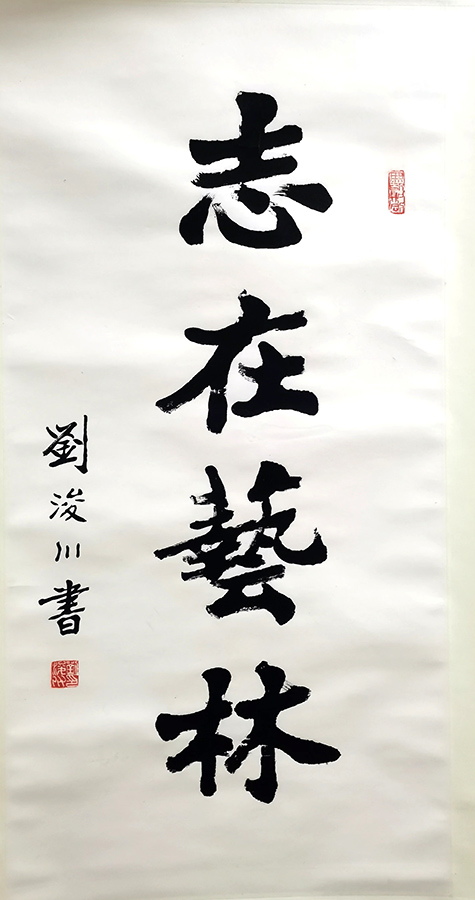 志在藝林
劉浚川書